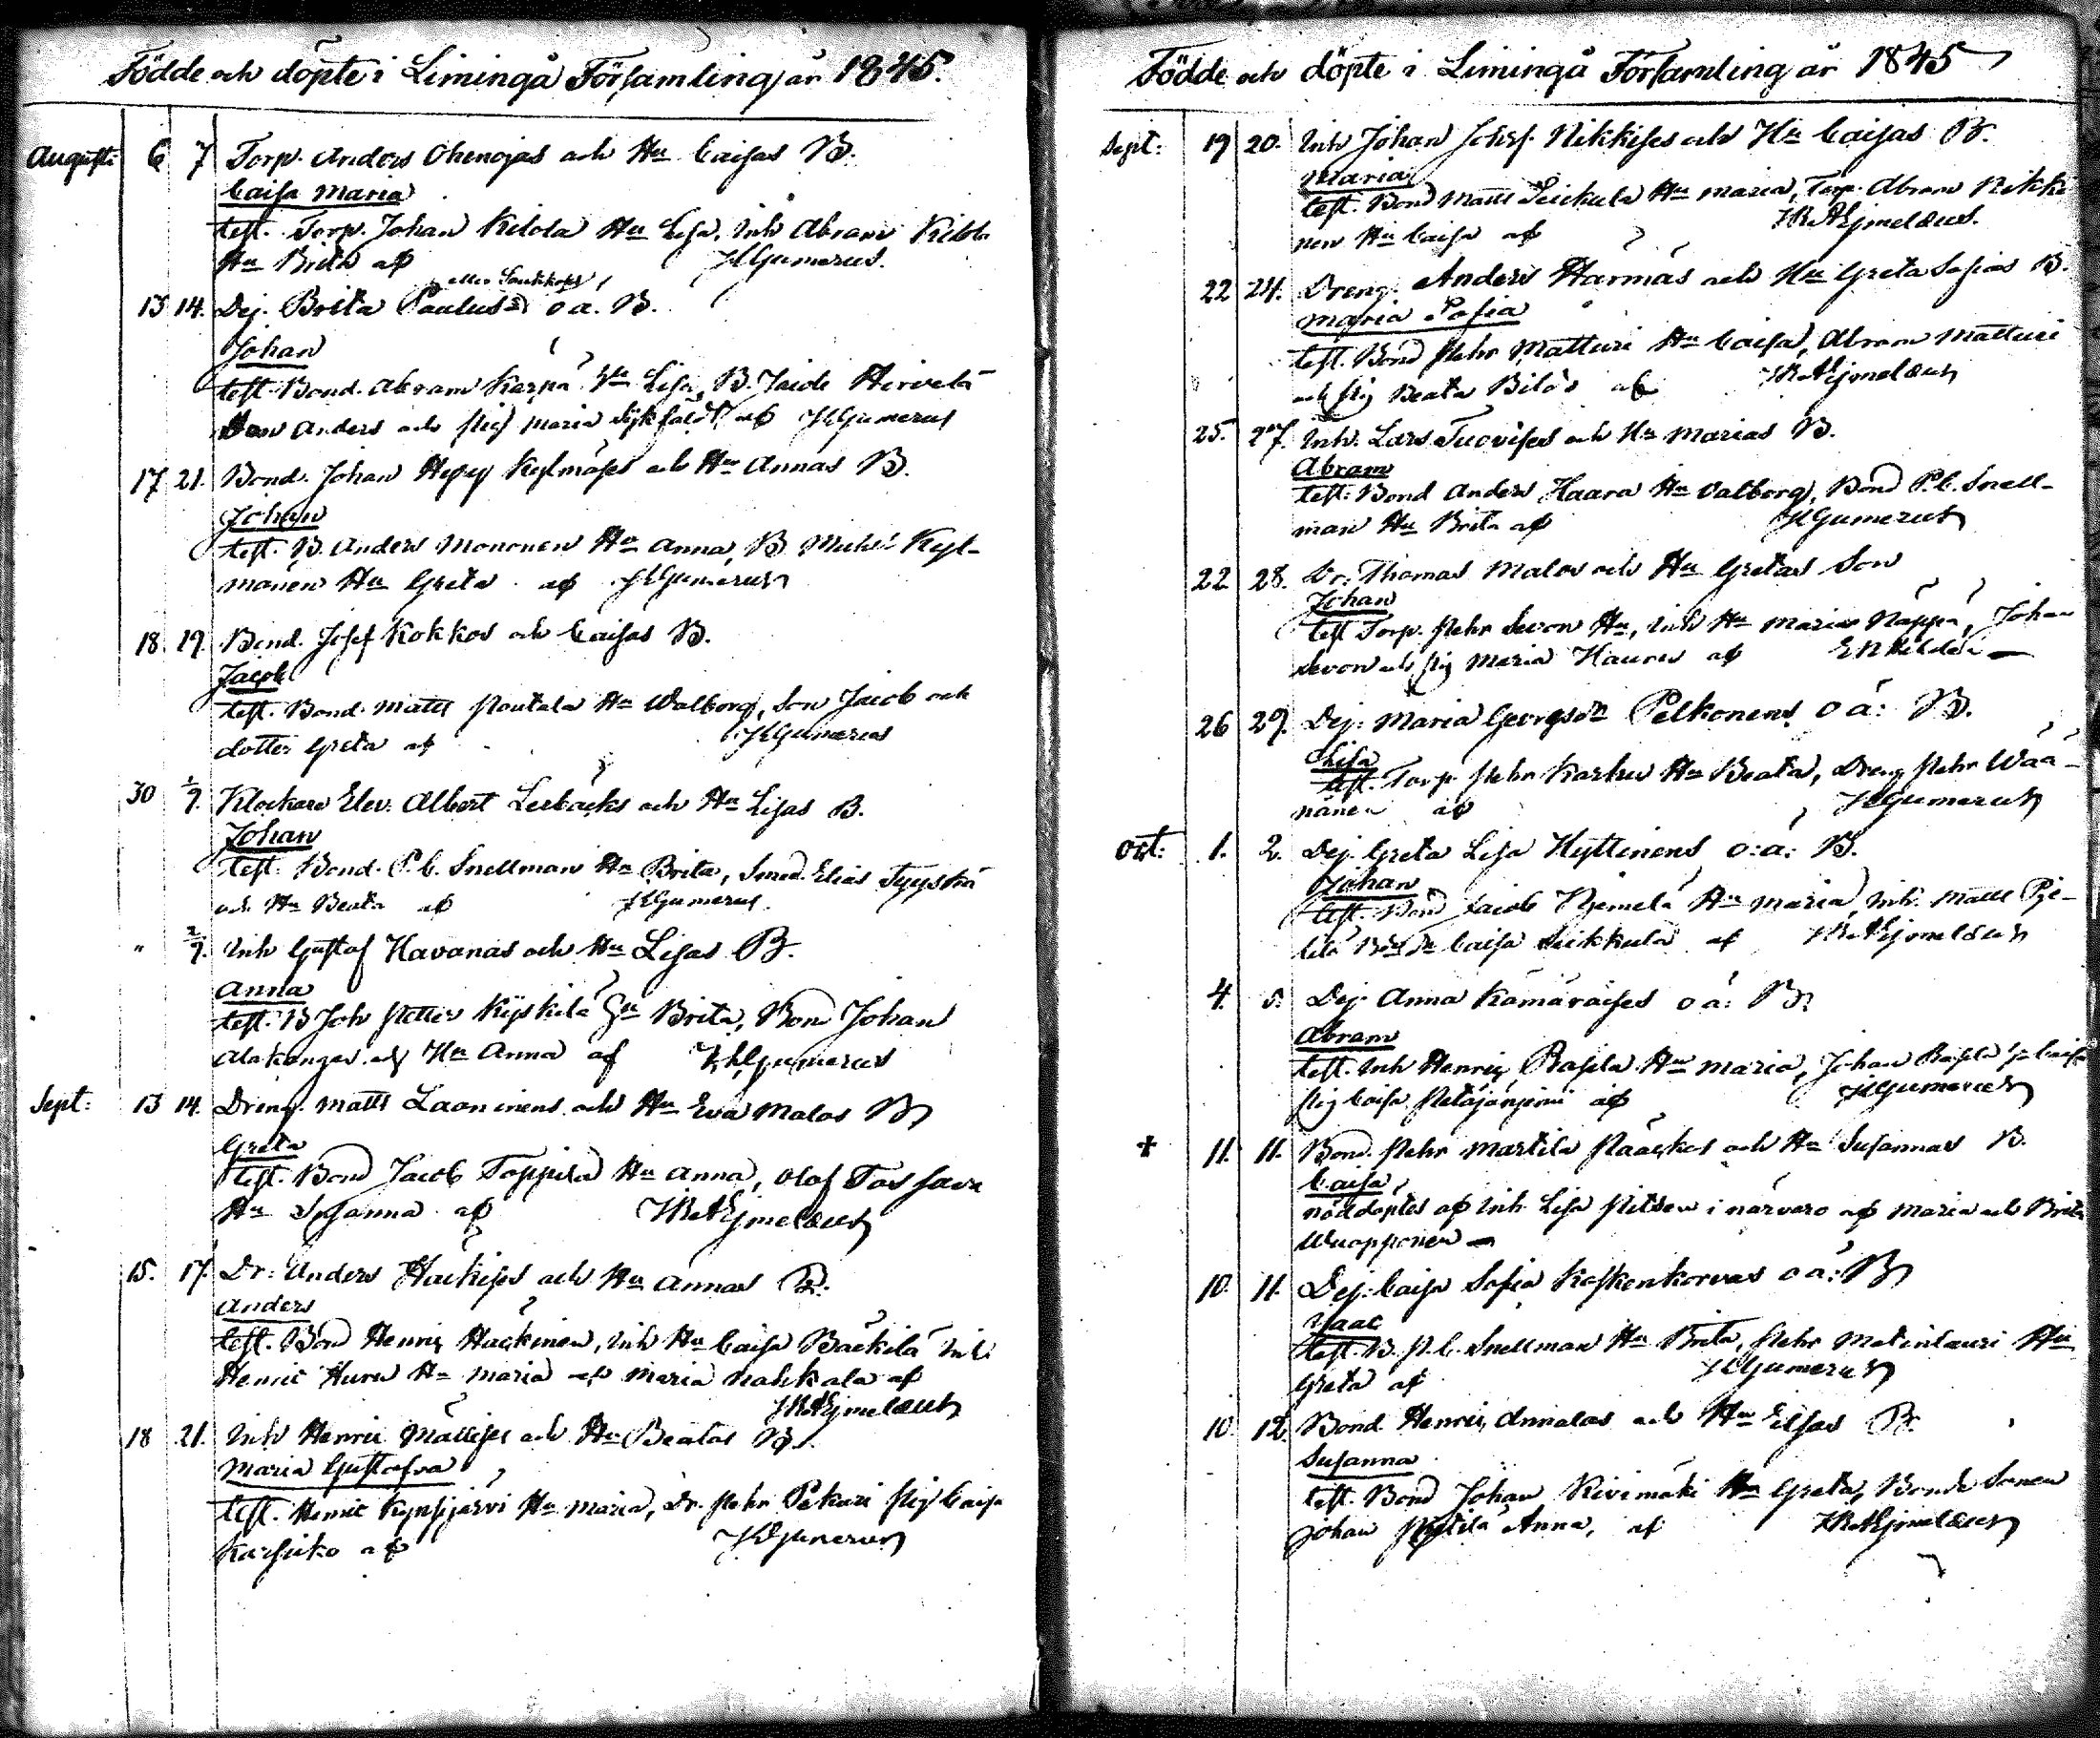 Födde och döpte i Limingå Församling år 1845.
Augusti 6 7 Torp. Anders Ohenojas och Hu Caisas B.
Caisa Maria
test. Torp. Johan Kilola Hu Lisa, Inh Abram Kilola
Hu Brita af JCGumerus.
eller
13 14. Dej. Brita Paulus o ä. B.
Johan
test. Bond. Abram Karpa Hu Lisa, B. Hirvelä
Son Anders och pig Maria af JCGumerus
17 21. Bond. Johan Kylmäses och Hu Annas B.
Johan
test. B. Anders Mononen Hu Anna, B. Mich: Kyl-
mänen Hu Greta af JCGumerus
18. 19. Bond. Josef Kokkos och Caisas B.
Jacob
test. Bond. Matts Poutala Hu Walborg, Son Jacob och
dotter Greta af JCGumerus
30 1/9. Klockare Elev. Albert Lerbäcks och Hu Lisas B.
Johan
test. Bond. P. C. Snellman Hu Brita, Smed. Elias Tyyskä
och Hu Beata af JCGumerus.
" 2/9. Inh Gustaf Havanas och Hu Lisas B.
Anna
test. B Joh Petter Kyskilä Hu Brita, Bond Johan
Alakangas och Hu Anna af JCGumerus
Sept: 13 14. Dreng. Matts Laaninens och Hu Eva Malos B
Greta
test. Bond Jacob Toppila Hu Anna, Olof Tassava
Hu Susanna af
15. 17. Dr: Anders Häckises och Hu Annas B.
Anders
test. Bond Henric Häckinen, Inh Hu Caisa Bäckilä Inh
Henric Huru Hu Maria Maria Nahkala af
18 21. Inh Henric Mällises och Hu Beatas B.
Maria Gustafva
test. Henric Kypsjärvi Hu Maria, Dr. Pehr Pekuri pig Caisa
Karsikko af JCGumerus
Födde och döpte i Limingå Församling år 1845
Sept: 19 20. Inh Johan Johsf. Nikkises och Hu Caisas B.
Maria
test. Bond Matts Leickula Hu Maria, Torp. Abram Nikki-
nen Hu Caisa af
22 24. Dreng. Anders Härmäs och Hu Greta Sofias B.
Maria Sofia
test. Bond Pehr Matturi Hu Caisa, Abram Matturi
och pig Beata af
25. 27. Inh. Lars Tuovises och Hu Marias B.
Abram
test. Bond Anders Haara Hu Valborg, Bond P. C. Snell-
man Hu Brita af JCGumerus
22 28. Dr: Thomas Malos och Hu Gretas Son
Johan
test Torp. Pehr Sevon Hu, Inh Hu Maria Näppä, Johan
Sevon och pig Maria Haurus af
26 29. Dej: Maria Georgsdr Pelkonens o ä: B.
Lisa
test. Torp. Pehr Karhu Hu Beata, Dreng Pehr Wää-
nänen af JCGumerus
Oct: 1. 2. Dej. Greta Lisa Hyttinens o: ä: B.
Johan
test. Bond Jacob Niemelä Hu Maria, Inh. Matts Pie-
tilä Caisa Leickula af
4. 5. Dej. Anna Kämäräises o ä: B.
Abram
test. Inh Henric Hu Maria, Johan Hu Caisa
pig Caisa Petäjäniemi af JCGumerus
+ 11. 11. Bond. Pehr Martila Pääckos och Hu Susannas B.
Caisa
nöddöptes af Inh. Lisa Pitsen i närvaro af Maria och Brita
Wuopponen
10. 11. Dej. Caisa Sofia Koskenkorvas o ä: B
Isaac
test. B. P. C. Snellman Hu Brita, Pehr Matinlauri Hu
Greta af JCGumerus
10. 12. Bond. Henric Annalas och Hu Elsas B.
Susanna
test. Bond Johan Kivimäki Hu Greta, Bonde Sonen
Johan Anna, af